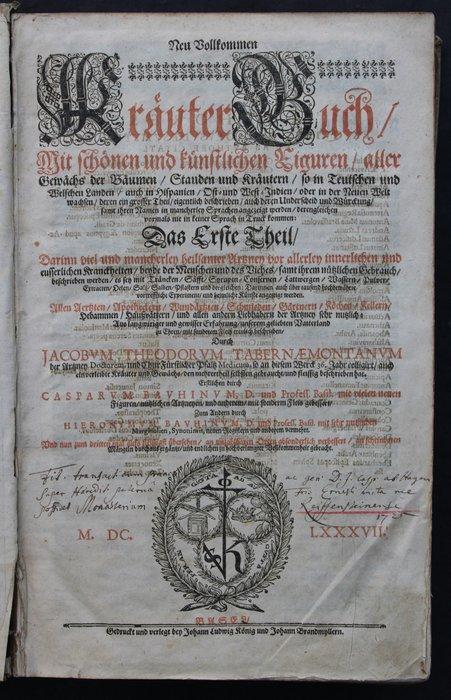 Neu Vollkommen
Kräuter-Buch/
Mit schönen und künstlichen Figuren/ aller
Gewächs der Bäumen/ Stauden und Kräutern/ so in Teutschen und
Welschen Landen/ auch in Hispanien/ Ost- und West-Indien/ oder in der Neuen Welt
wachsen/ deren ein grosser Theil eigentlich beschrieben/ auch deren Underscheid und Würckung/
samt ihren Namen in mancherley Sprachen angezeigt werden/ derengleichen
vormals nie in keiner Sprach in Truck kommen:
Das Erste Theil/
Darinn viel und mancherley heilsamer Artzney vor allerley innerlichen und
eusserlichen Kranckheiten/ beyde der Menschen und des Viehes/ samt ihrem nützlichen Gebrauch/
beschrieben werden/ es sey mit Träncken/ Säfft/ Syrupen/ Conserven/ Lattwergen/ Wassern/ Pulver/
Extracten/ Oelen/ Saltz/ Salben/ Pflaster und dergleichen: Darinnen auch über tausend hochbewehrte/
vortreffliche Experimenta/ und heimliche Künste angezeigt werden.
Allen Aertzten/ Apotheckern/ Wundärtzten/ Schmieden/ Gärtnern/ Köchen/ Kellern/
Hebammen/ Hausvättern/ und allen andern Liebhabern der Artzney sehr nutzlich:
Aus langwiriger und gewisser Erfahrung/ unserem geliebten Vatterland
zu Ehren/ mit sonderm Fleiß treulich beschrieben/
Durch
JACOBUM THEODORUM TABERNÆMONTANUM
der Artzney Doctorem, und Chur-Fürstlicher Pfaltz Medicum, so an diesem Werck 36. Jahr colligirt/ auch
einverleibte Kräuter und Gewächs/ den mehrentheil selbsten gebraucht und fleissig beschrieben hat.
Erstlichen durch
CASPARUM BAUHINUM, D. und Profess. Basil. mit vielen neuen
Figuren/ nützlichen Artzneyen/ und anderem/ mit sonderm Fleiß gebessert/
Zum Andern durch
HIERONYMUM BAUHINUM, D. und Profess. Basil. mit sehr nutzlichen
Marginalien, Synonimis, neuen Registern und anderem vermehrt,
Und nun zum dritten mal aufs fleissigst übersehen/ an unzahlbaren Orten absonderlich verbessert/ an scheinbaren
Mänglen durchaus ergäntzt/ und endlichen zu hochverlangter Vollkommenheit gebracht.
M. DC. LXXXVII.
BASEL/
Gedruckt und verlegt bey Johann Ludwig König und Johann Brandmyllern.